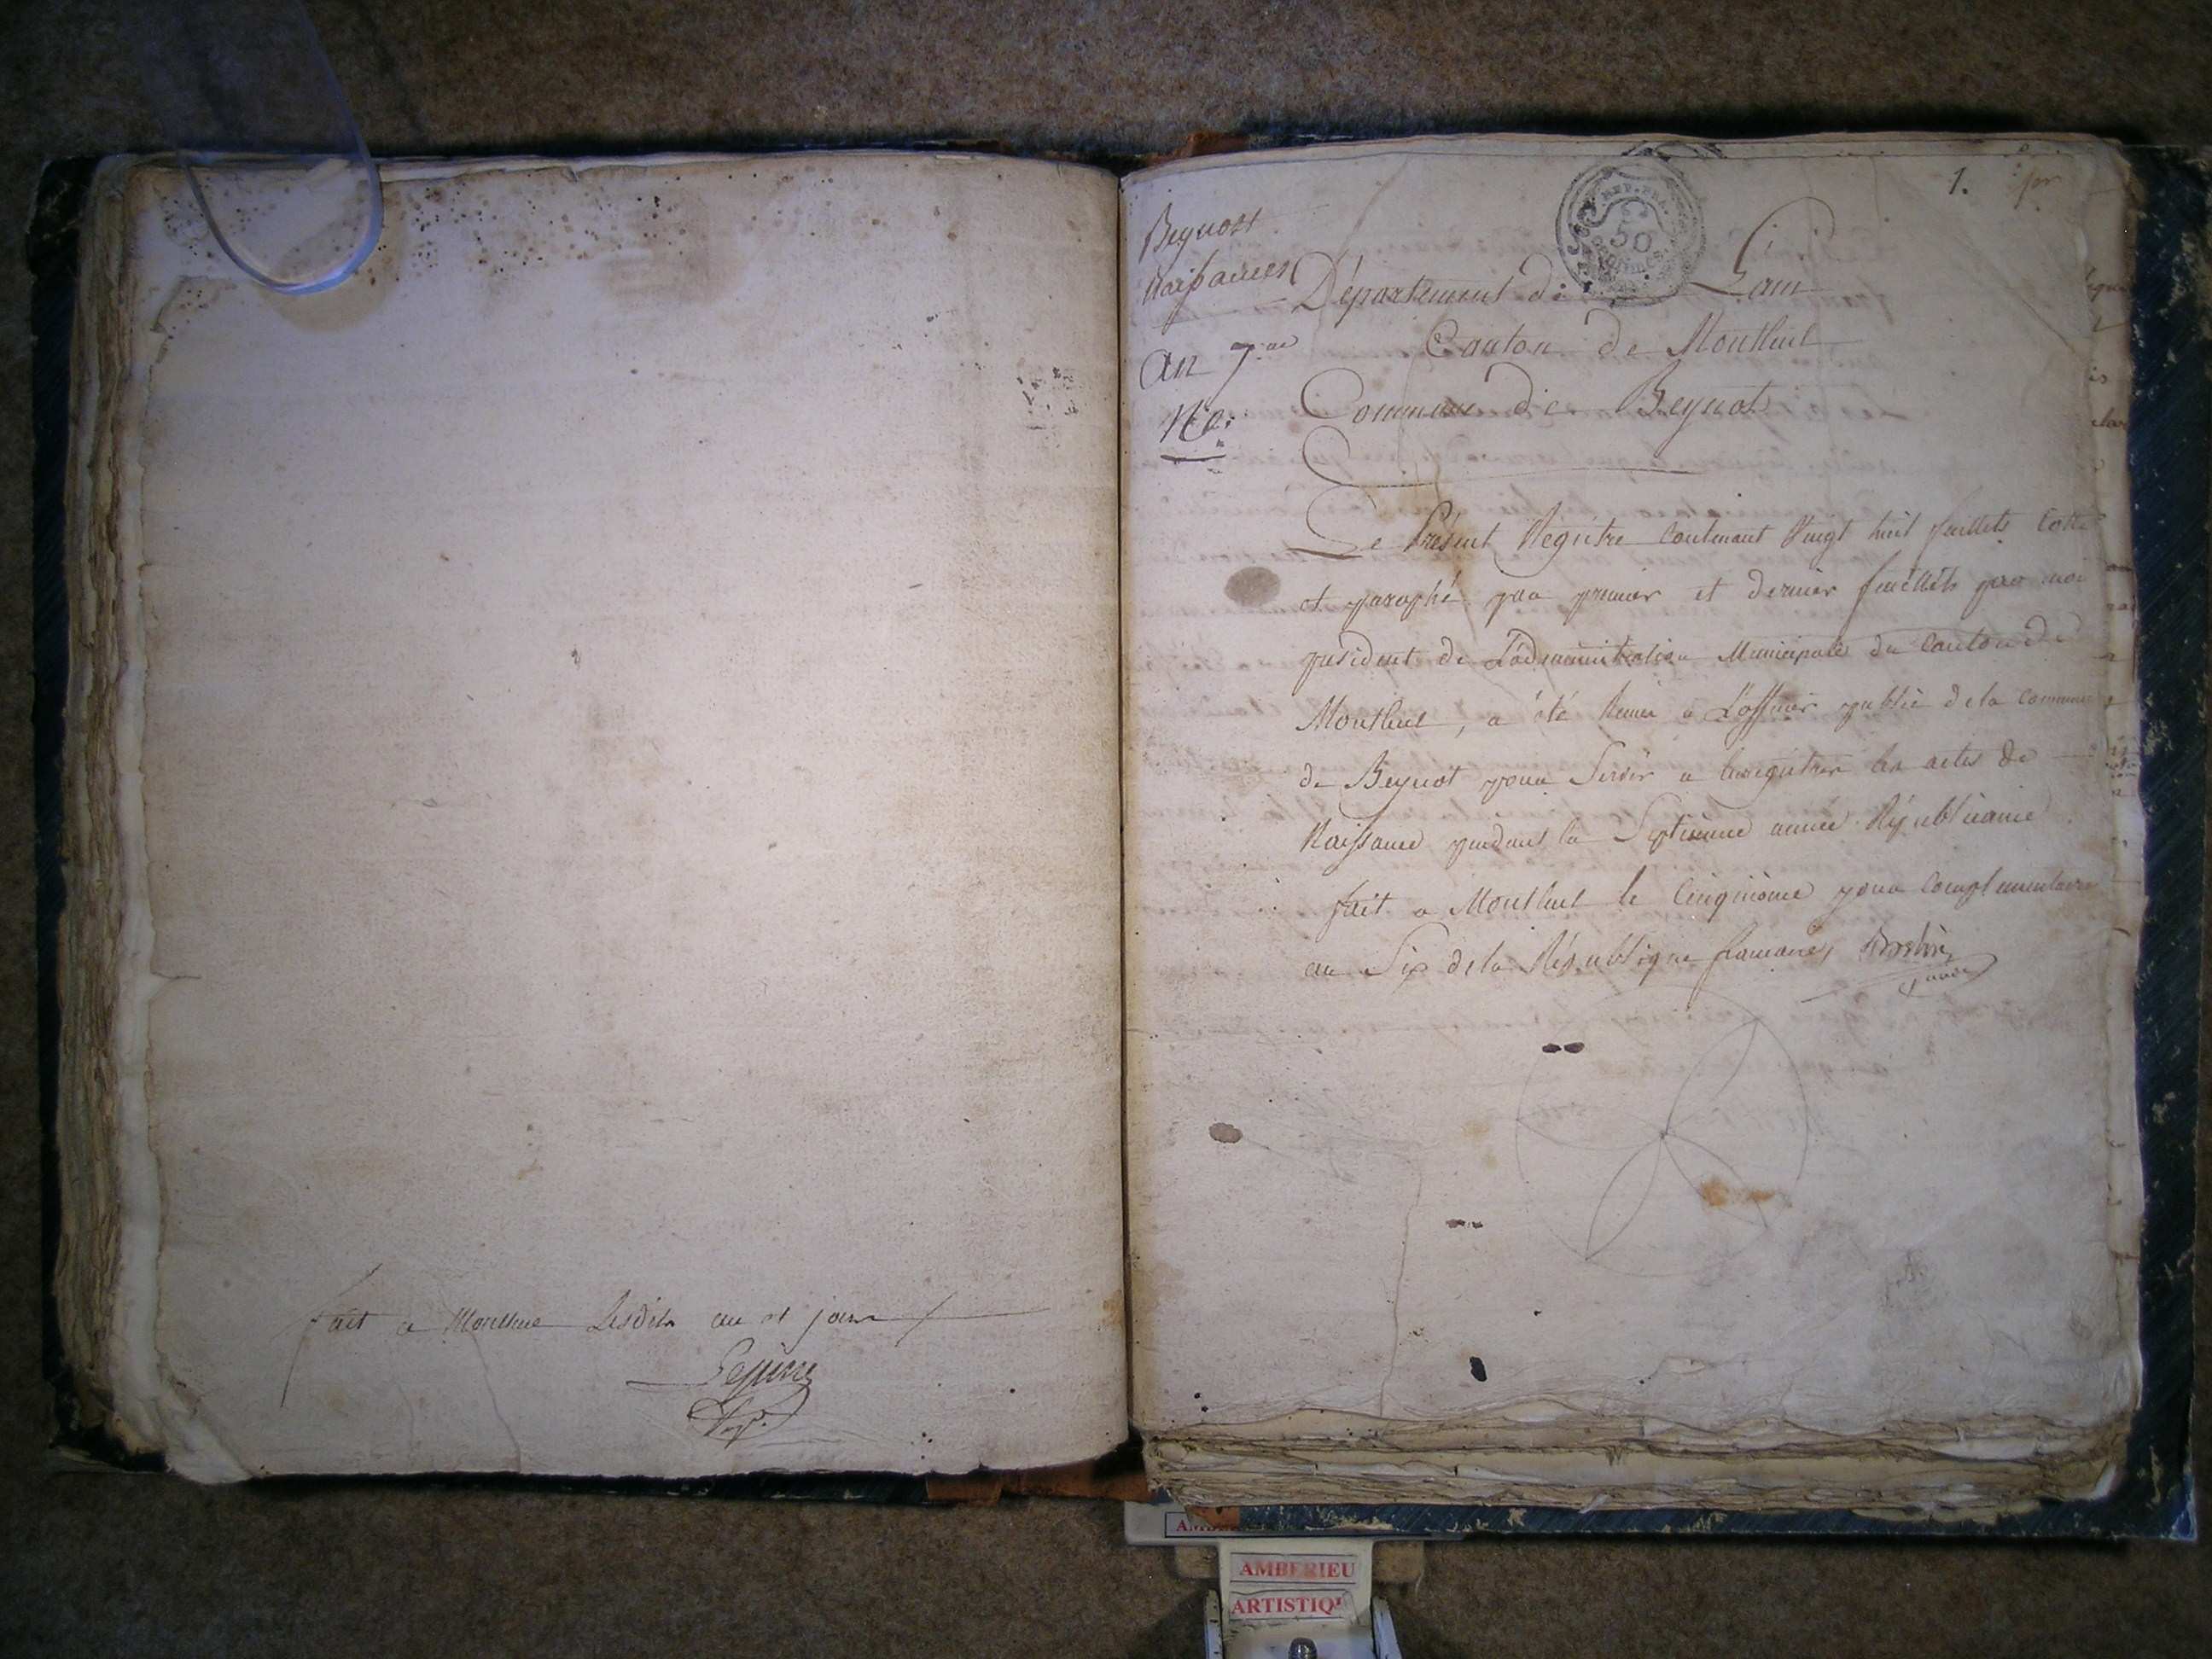 fait a Montluel Lesdits an et jour
1. pr
REP. FRA.
50
CENTIMES
Beynost
Naissances
an 7.me
Na:
Département de Lain
Canton de Montluel
Commune de Beynot
Le Présent Régistre contenant Vingt huit feuillets Cotté
et paraphé par premier et dernier feuillets par moi
président de L'administration Municipale du Canton de
Montluel, a été Remis a L'officier public dela commune
de Beynot pour Servir a Enregistrer les actes de
Naissance pendant la Septieme année Républicaine
fait a Montluel le Cinquième jour complementaire
an Six dela République francaise,
AMBERIEU
ARTISTIQ